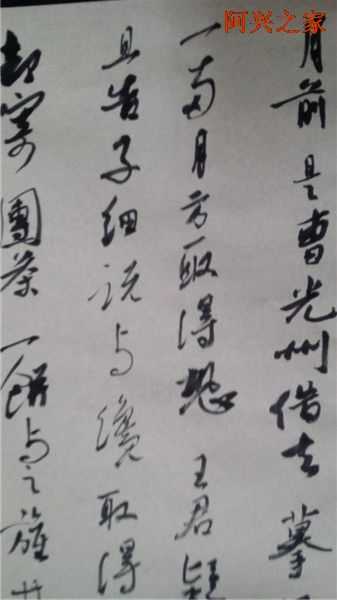 阿兴之家
月前是曹光州借去摹
一兩月方取得恐王君疑
且告子細説与纔取得
却寄團茶一餅与之旌